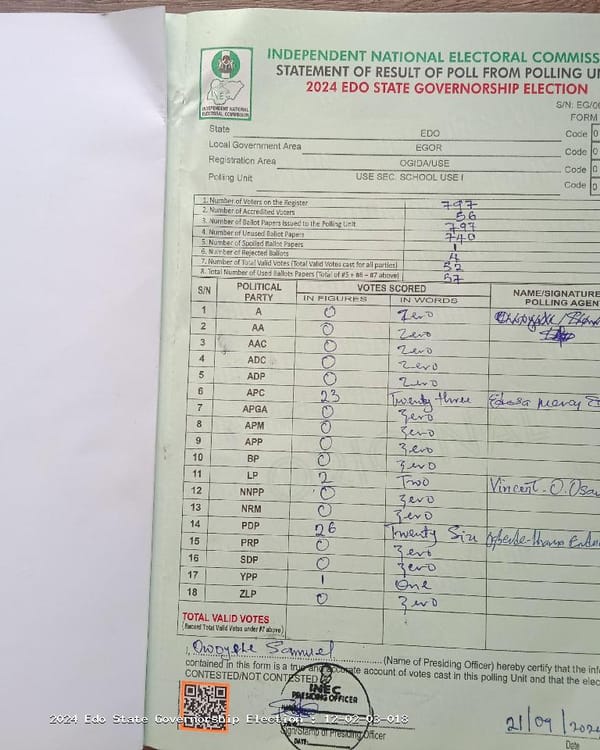 INDEPENDENT NATIONAL ELECTORAL COMMISS
STATEMENT OF RESULT OF POLL FROM POLLING UN
2024 EDO STATE GOVERNORSHIP ELECTION
INDEPENDENT NATIONAL ELECTORAL COMMISSION
S/N: EG/0
FORM
State EDO Code 0
Local Government Area EGOR Code 0
Registration Area OGIDA/USE Code 0
Polling Unit USE SEC. SCHOOL USE I Code 0
1. Number of Voters on the Register 797
2. Number of Accredited Voters 56
3. Number of Ballot Papers Issued to the Polling Unit 797
4. Number of Unused Ballot Papers 740
5. Number of Spoiled Ballot Papers 1
6. Number of Rejected Ballots 4
7. Number of Total Valid Votes (Total Valid Votes cast for all parties) 52
8. Total Number of Used Ballots Papers (Total of #5 + #6 + #7 above) 57
S/N POLITICAL PARTY VOTES SCORED NAME/SIGNATURE POLLING AGENT
IN FIGURES IN WORDS
1 A 0 Zero
2 AA 0 Zero
3 AAC 0 Zero
4 ADC 0 Zero
5 ADP 0 Zero
6 APC 23 Twenty three Edosa Mercy
7 APGA 0 Zero
8 APM 0 Zero
9 APP 0 Zero
10 BP 0 Zero
11 LP 2 Two Vincent. O. Osa
12 NNPP 0 Zero
13 NRM 0 Zero
14 PDP 26 Twenty Six
15 PRP 0 Zero
16 SDP 0 Zero
17 YPP 1 One
18 ZLP 0 Zero
TOTAL VALID VOTES
(Record Total Valid Votes under #7 above)
I, Samuel (Name of Presiding Officer) hereby certify that the info
contained in this form is a true and accurate account of votes cast in this polling Unit and that the elec
CONTESTED/NOT CONTESTED
INEC
PRESIDING OFFICER
Sign/Stamp of Presiding Officer
DATE:
21/09/202
Date
2024 Edo State Governorship Election : 12-02-03-018